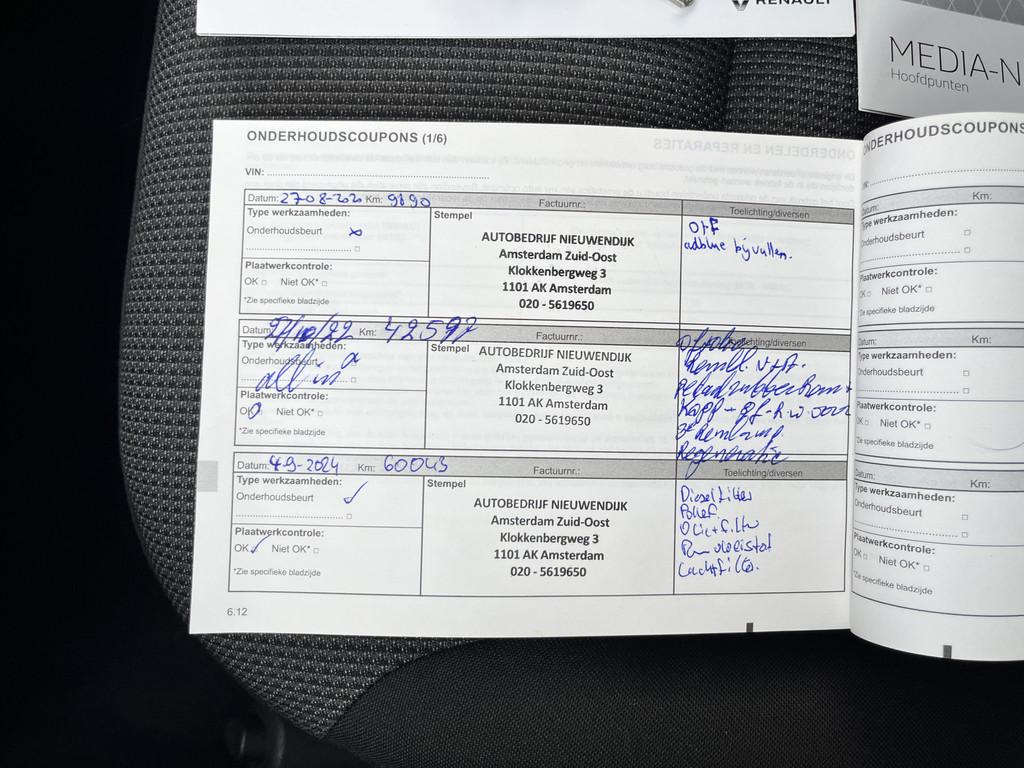 RENAULT
MEDIA-N
Hoofdpunten
ONDERHOUDSCOUPONS (1/6)
VIN:
Datum: 27-08-2020 Km: 9890 Factuurnr.: Toelichting/diversen
Type werkzaamheden:
Onderhoudsbeurt x
Plaatwerkcontrole:
OK □ Niet OK* □
*Zie specifieke bladzijde
Stempel
AUTOBEDRIJF NIEUWENDIJK
Amsterdam Zuid-Oost
Klokkenbergweg 3
1101 AK Amsterdam
020 - 5619650
O+F
adblue bijvullen.
Datum: 27/10/22 Km: 42597 Factuurnr.: Toelichting/diversen
Type werkzaamheden:
Onderhoudsbeurt
all in
Plaatwerkcontrole:
OK Niet OK* □
*Zie specifieke bladzijde
Stempel
AUTOBEDRIJF NIEUWENDIJK
Amsterdam Zuid-Oost
Klokkenbergweg 3
1101 AK Amsterdam
020 - 5619650
Regeneratie
Datum: 4-9-2024 Km: 60043 Factuurnr.: Toelichting/diversen
Type werkzaamheden:
Onderhoudsbeurt ✓
Plaatwerkcontrole:
OK ✓ Niet OK* □
*Zie specifieke bladzijde
Stempel
AUTOBEDRIJF NIEUWENDIJK
Amsterdam Zuid-Oost
Klokkenbergweg 3
1101 AK Amsterdam
020 - 5619650
Dieselfilter
Pollef.
Olie+filter
Luchtfilter.
6.12
ONDERHOUDSCOUPONS
Datum: Km:
Type werkzaamheden:
Onderhoudsbeurt □
Plaatwerkcontrole:
OK □ Niet OK* □
*Zie specifieke bladzijde
Datum: Km:
Type werkzaamheden:
Onderhoudsbeurt □
Plaatwerkcontrole:
OK □ Niet OK* □
*Zie specifieke bladzijde
Datum: Km:
Type werkzaamheden:
Onderhoudsbeurt □
Plaatwerkcontrole:
OK □ Niet OK* □
*Zie specifieke bladzijde